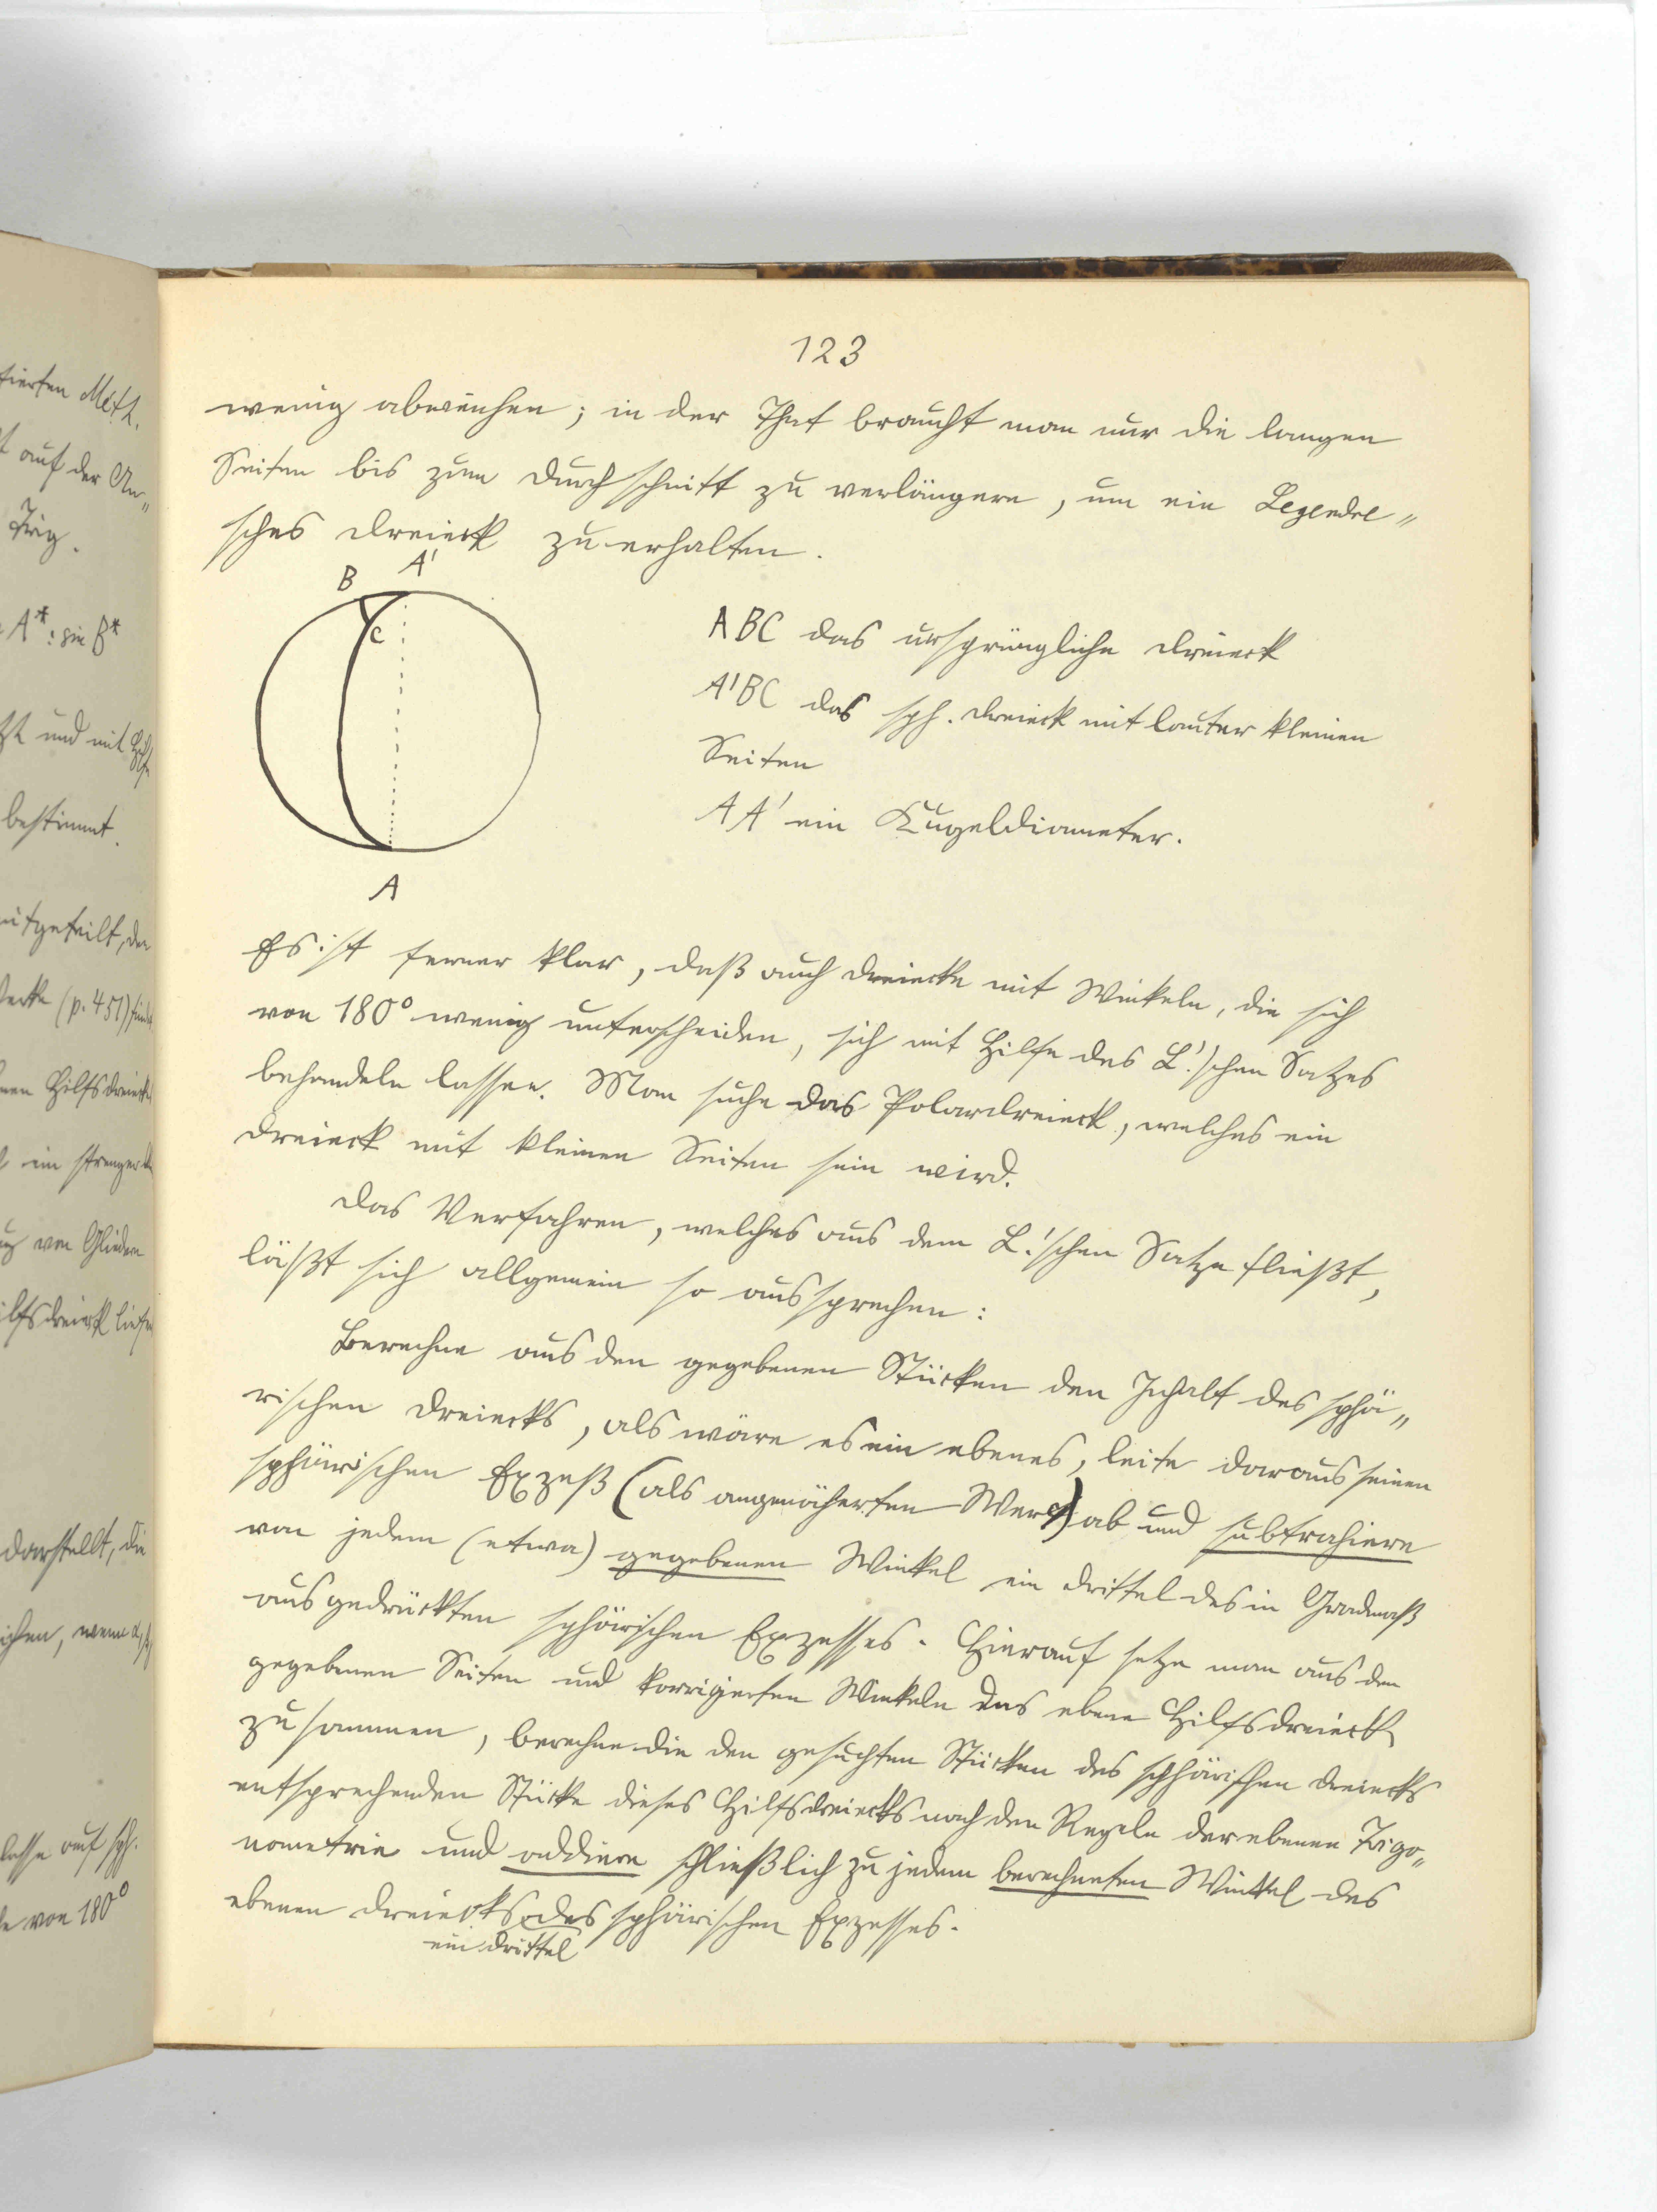 123
wenig abweichen; in der That braucht man nur die langen
Seiten bis zum Durchschnitt zu verlängern, um ein Legendre„
sches Dreieck zu erhalten.
B A'
C
A
ABC das ursprüngliche Dreieck
A'BC das sph. Dreieck mit lauter kleinen
Seiten
AA' ein Kugeldiameter.
Es ist ferner klar, daß auch Dreiecke mit Winkeln, die sich
von 180° wenig unterscheiden, sich mit Hilfe des L.'schen Satzes
behandeln lassen. Man suche das Polardreieck, welches ein
Dreieck mit kleinen Seiten sein wird.
Das Verfahren, welches aus dem L.'schen Satze fließt,
läßt sich allgemein so aussprechen:
Berechne aus den gegebenen Stücken den Inhalt des sphä„
rischen Dreiecks, als wäre es ein ebenes, leite daraus seinen
sphärischen Exzeß (als angenäherten Wert) ab und subtrahiere
von jedem (etwa) gegebenen Winkel ein Drittel des in Gradmaß
ausgedrückten sphärischen Exzesses. Hierauf setze man aus den
gegebenen Seiten und korrigierten Winkeln das ebene Hilfsdreieck
zusammen, berechne die den gesuchten Stücken des sphärischen Dreiecks
entsprechenden Stücke dieses Hilfsdreiecks nach den Regeln der ebenen Trigo„
nometrie und addiere schließlich zu jedem berechneten Winkel des
ebenen Dreiecks des sphärischen Exzesses.
ein Drittel
tierten Meth.
auf der An„
Trig.
A* : sin B*
und mit Hilfe
bestimmt.
mitgeteilt, der
(p. 451)
Hilfsdreieck
ein strenger
von Gliedern
darstellt, die
wenn α, β,
auf sph.
von 180°